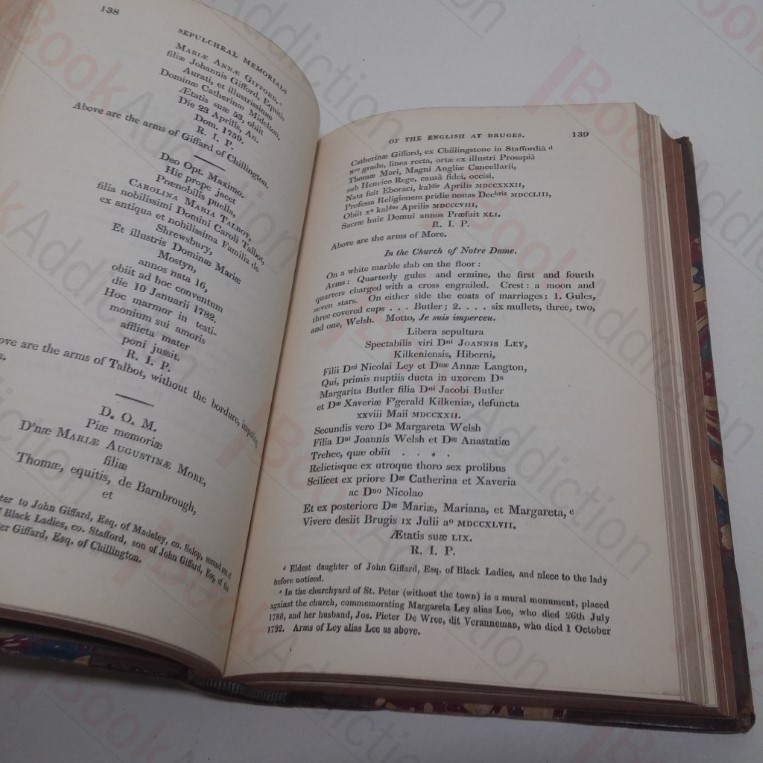 138
SEPULCHRAL MEMORIALS
MARIÆ ANNÆ GIFFORD, c
filiæ Johannis Gifford, Equitis
Aurati, et illustrissimæ
Dominæ Catherinæ Midelton,
Ætatis suæ 53, obiit
Die 23 Aprilis, An.
Dom. 1759.
R. I. P.
Above are the arms of Giffard of Chillington.
Deo Opt. Maximo.
Hic prope jacet
Poenobilis puella,
CAROLINA MARIA TALBOT,
filia nobilissimi Domini Caroli Talbot,
ex antiqua et nobilissima Familia de
Shrewsbury,
Et illustris Dominæ Mariæ
Mostyn,
annos nata 16,
obiit ad hoc conventum
die 10 Januarii 1782.
Hoc marmor in testi-
monium sui amoris
afflicta mater
poni jussit.
R. I. P.
ove are the arms of Talbot, without the bordure,
s.
D. O. M.
Piæ memoriæ
D'næ MARIÆ AUGUSTINÆ MORE,
filiæ
Thomæ, equitis, de Barnbrough,
et
ter to John Giffard, Esq. of Madeley, co. Salop,
Black Ladies, co. Stafford, son of John Giffard, Esq. of the
er Giffard, Esq. of Chillington.
OF THE ENGLISH AT BRUGES. 139
Catherinæ Gifford, ex Chillingstone in Staffordiâ d
Nno gradu, linea recta, ortæ ex illustri Prosapiâ
Thomæ Mori, Magni Angliæ Cancellarii,
sub Henrico Rege, causâ fidei, occisi.
Nata fuit Eboraci, kaldis Aprilis MDCCXXXII,
Professa Religionem pridie nonas Decbris MDCCLIII,
Obiit xo kaldis Aprilis MDCCCVIII,
Sacræ huic Domui annos Præfuit XLI.
R. I. P.
Above are the arms of More.
In the Church of Notre Dame.
On a white marble slab on the floor:
Arms: Quarterly gules and ermine, the first and fourth
quarters charged with a cross engrailed. Crest: a moon and
seven stars. On either side the coats of marriages: 1. Gules,
three covered cups . . . Butler; 2. . . . six mullets, three, two,
and one, Welsh. Motto, Je suis imperceu.
Libera sepultura
Spectabilis viri Dni JOANNIS LEY,
Kilkeniensis, Hiberni,
Filii Dni Nicolai Ley et Dnæ Annæ Langton,
Qui, primis nuptiis ducta in uxorem Da
Margarita Butler filia Dni Jacobi Butler
et Dnæ Xaveriæ F'gerald Kilkeniæ, defuncta
xxviii Maii MDCCXXII.
Secundis vero Da Margareta Welsh
Filia Dni Joannis Welsh et Dnæ Anastatiæ
Trehee, quæ obiit . . . .
Relictisque ex utroque thoro sex prolibus
Scilicet ex priore Dnæ Catherina et Xaveria
ac Dno Nicolao
Et ex posteriore Dnæ Mariæ, Mariana, et Margareta, e
Vivere desiit Brugis IX Julii ao MDCCXLVII.
Ætatis suæ LIX.
R. I. P.
d Eldest daughter of John Giffard, Esq. of Black Ladies, and niece to the lady
before noticed.
e In the churchyard of St. Peter (without the town) is a mural monument, placed
against the church, commemorating Margareta Ley alias Lee, who died 26th July
1786, and her husband, Jos. Pieter De Wree, dit Veranneman, who died 1 October
1792. Arms of Ley alias Lee as above.
Book Addiction